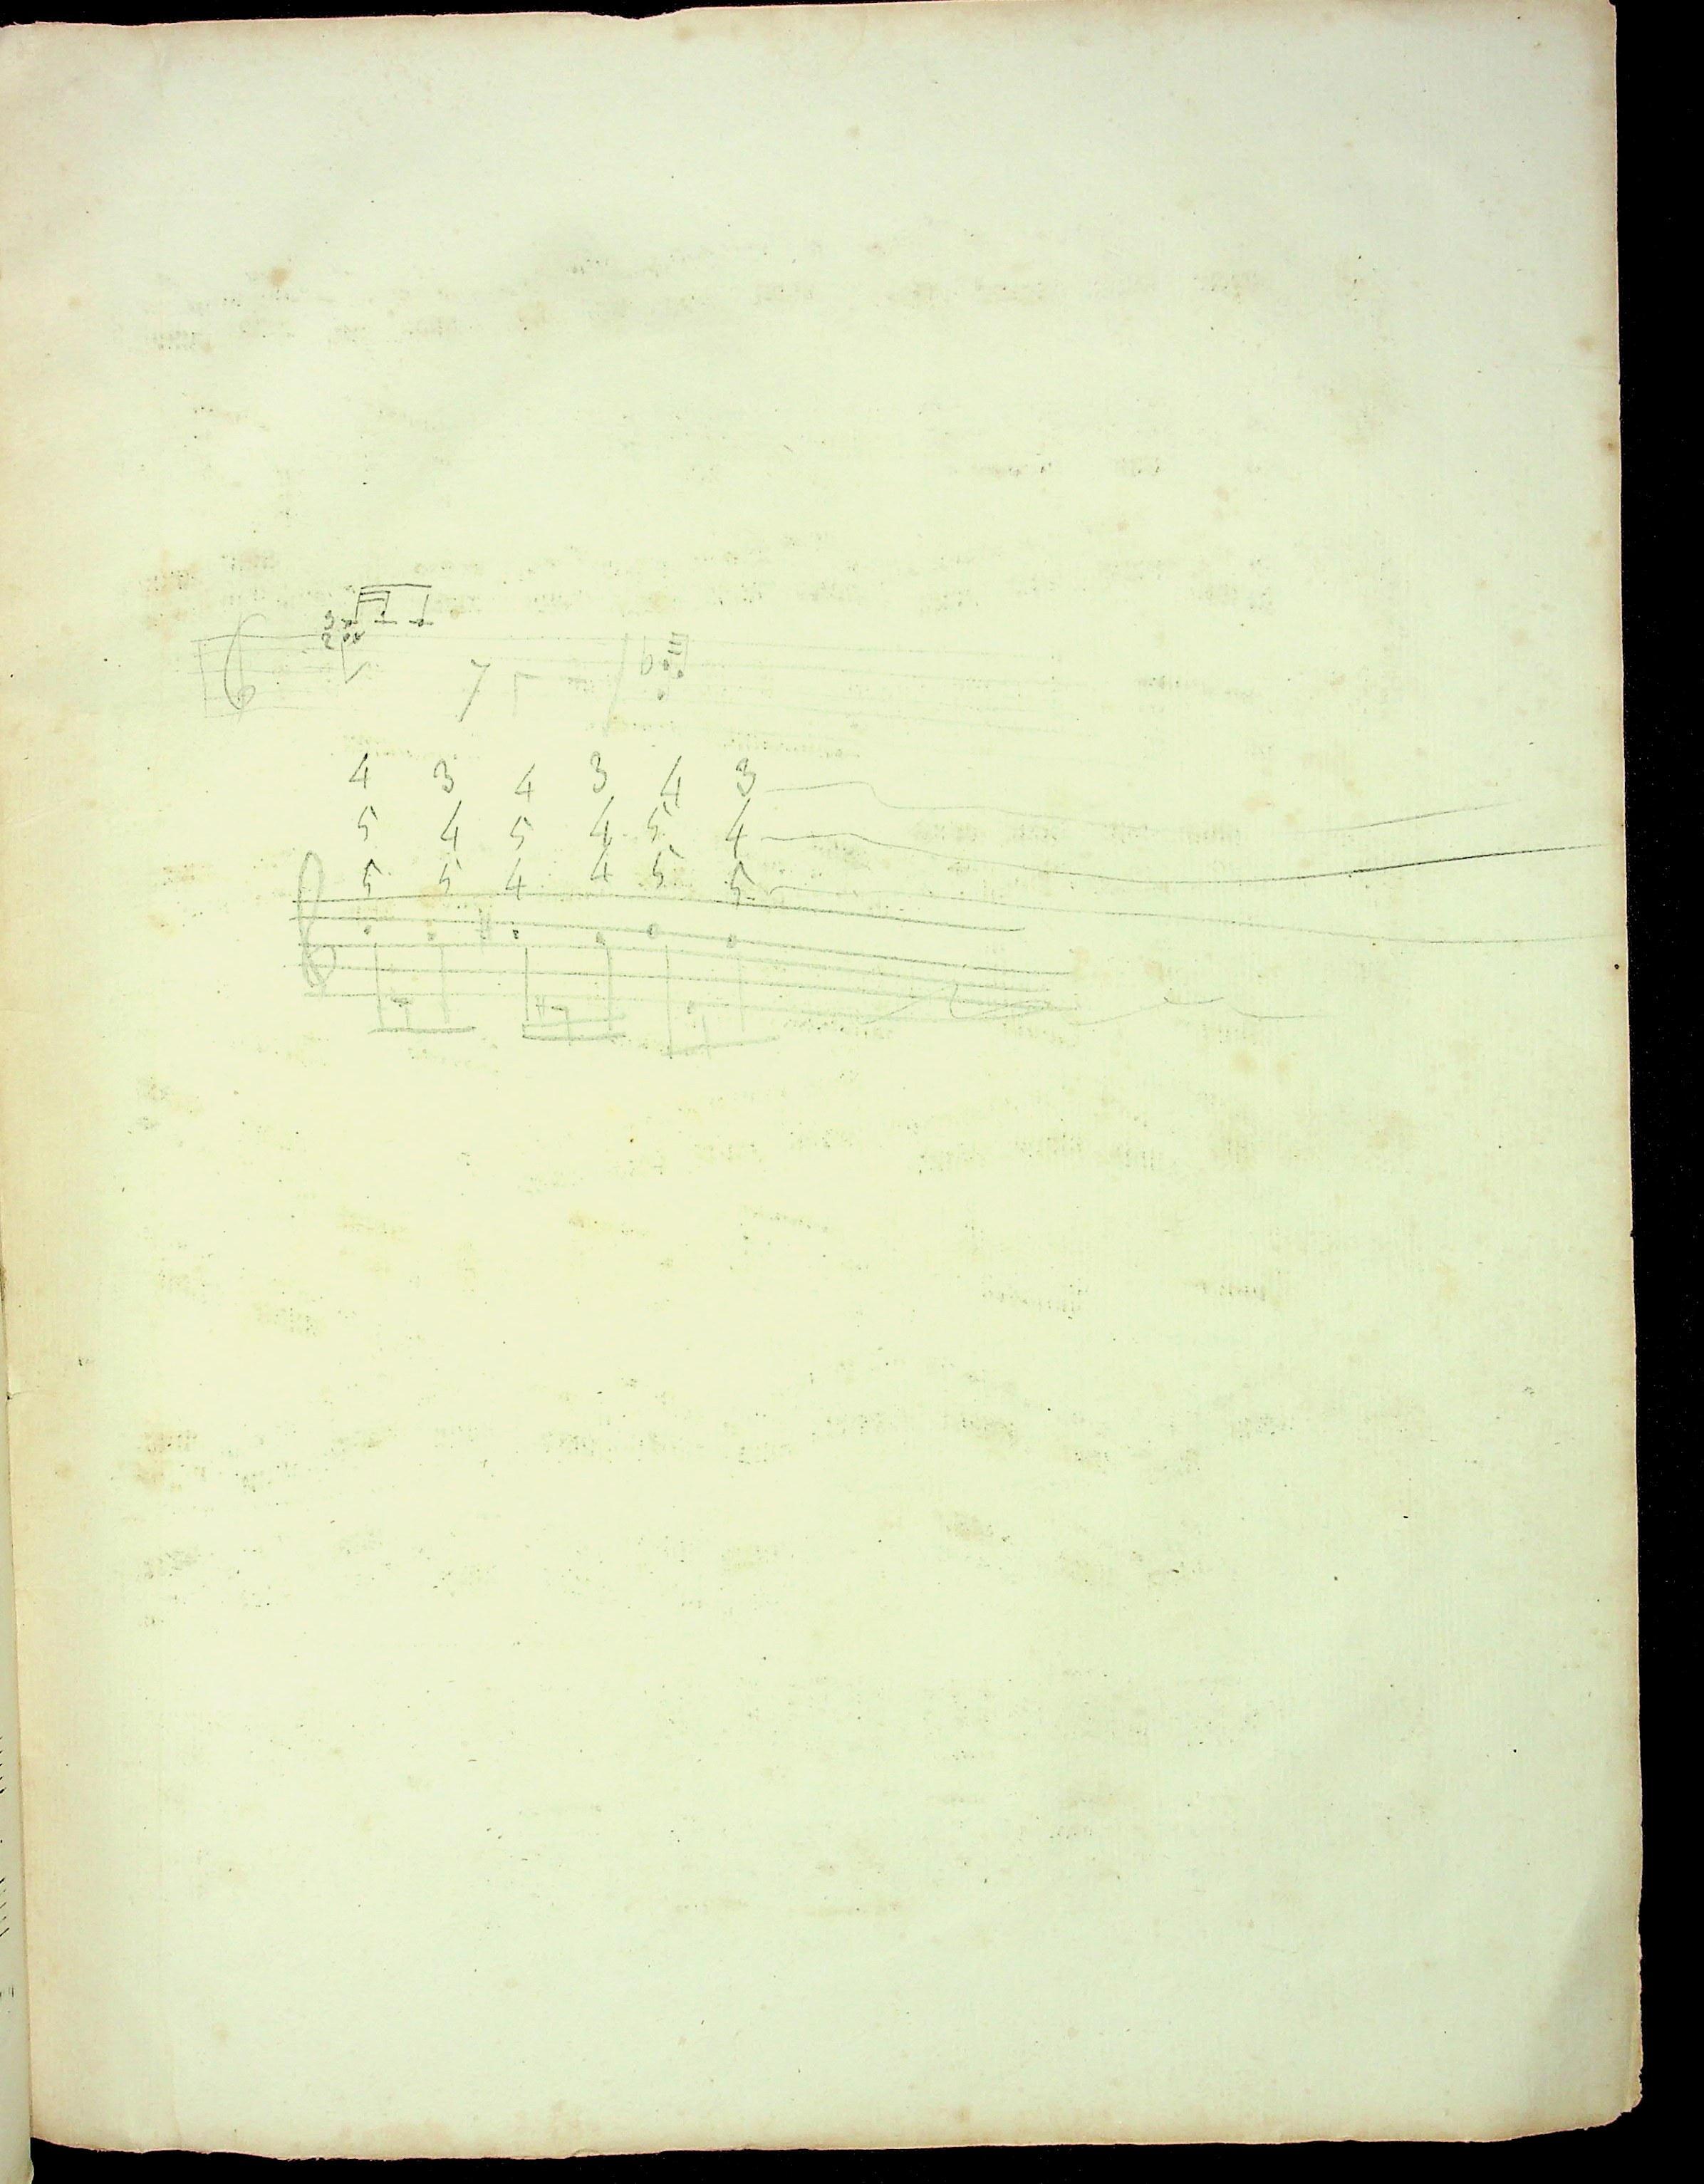 3
2
4 3 4 3 4 3
5 4 5 4 5 4
5 5 4 4 5 5